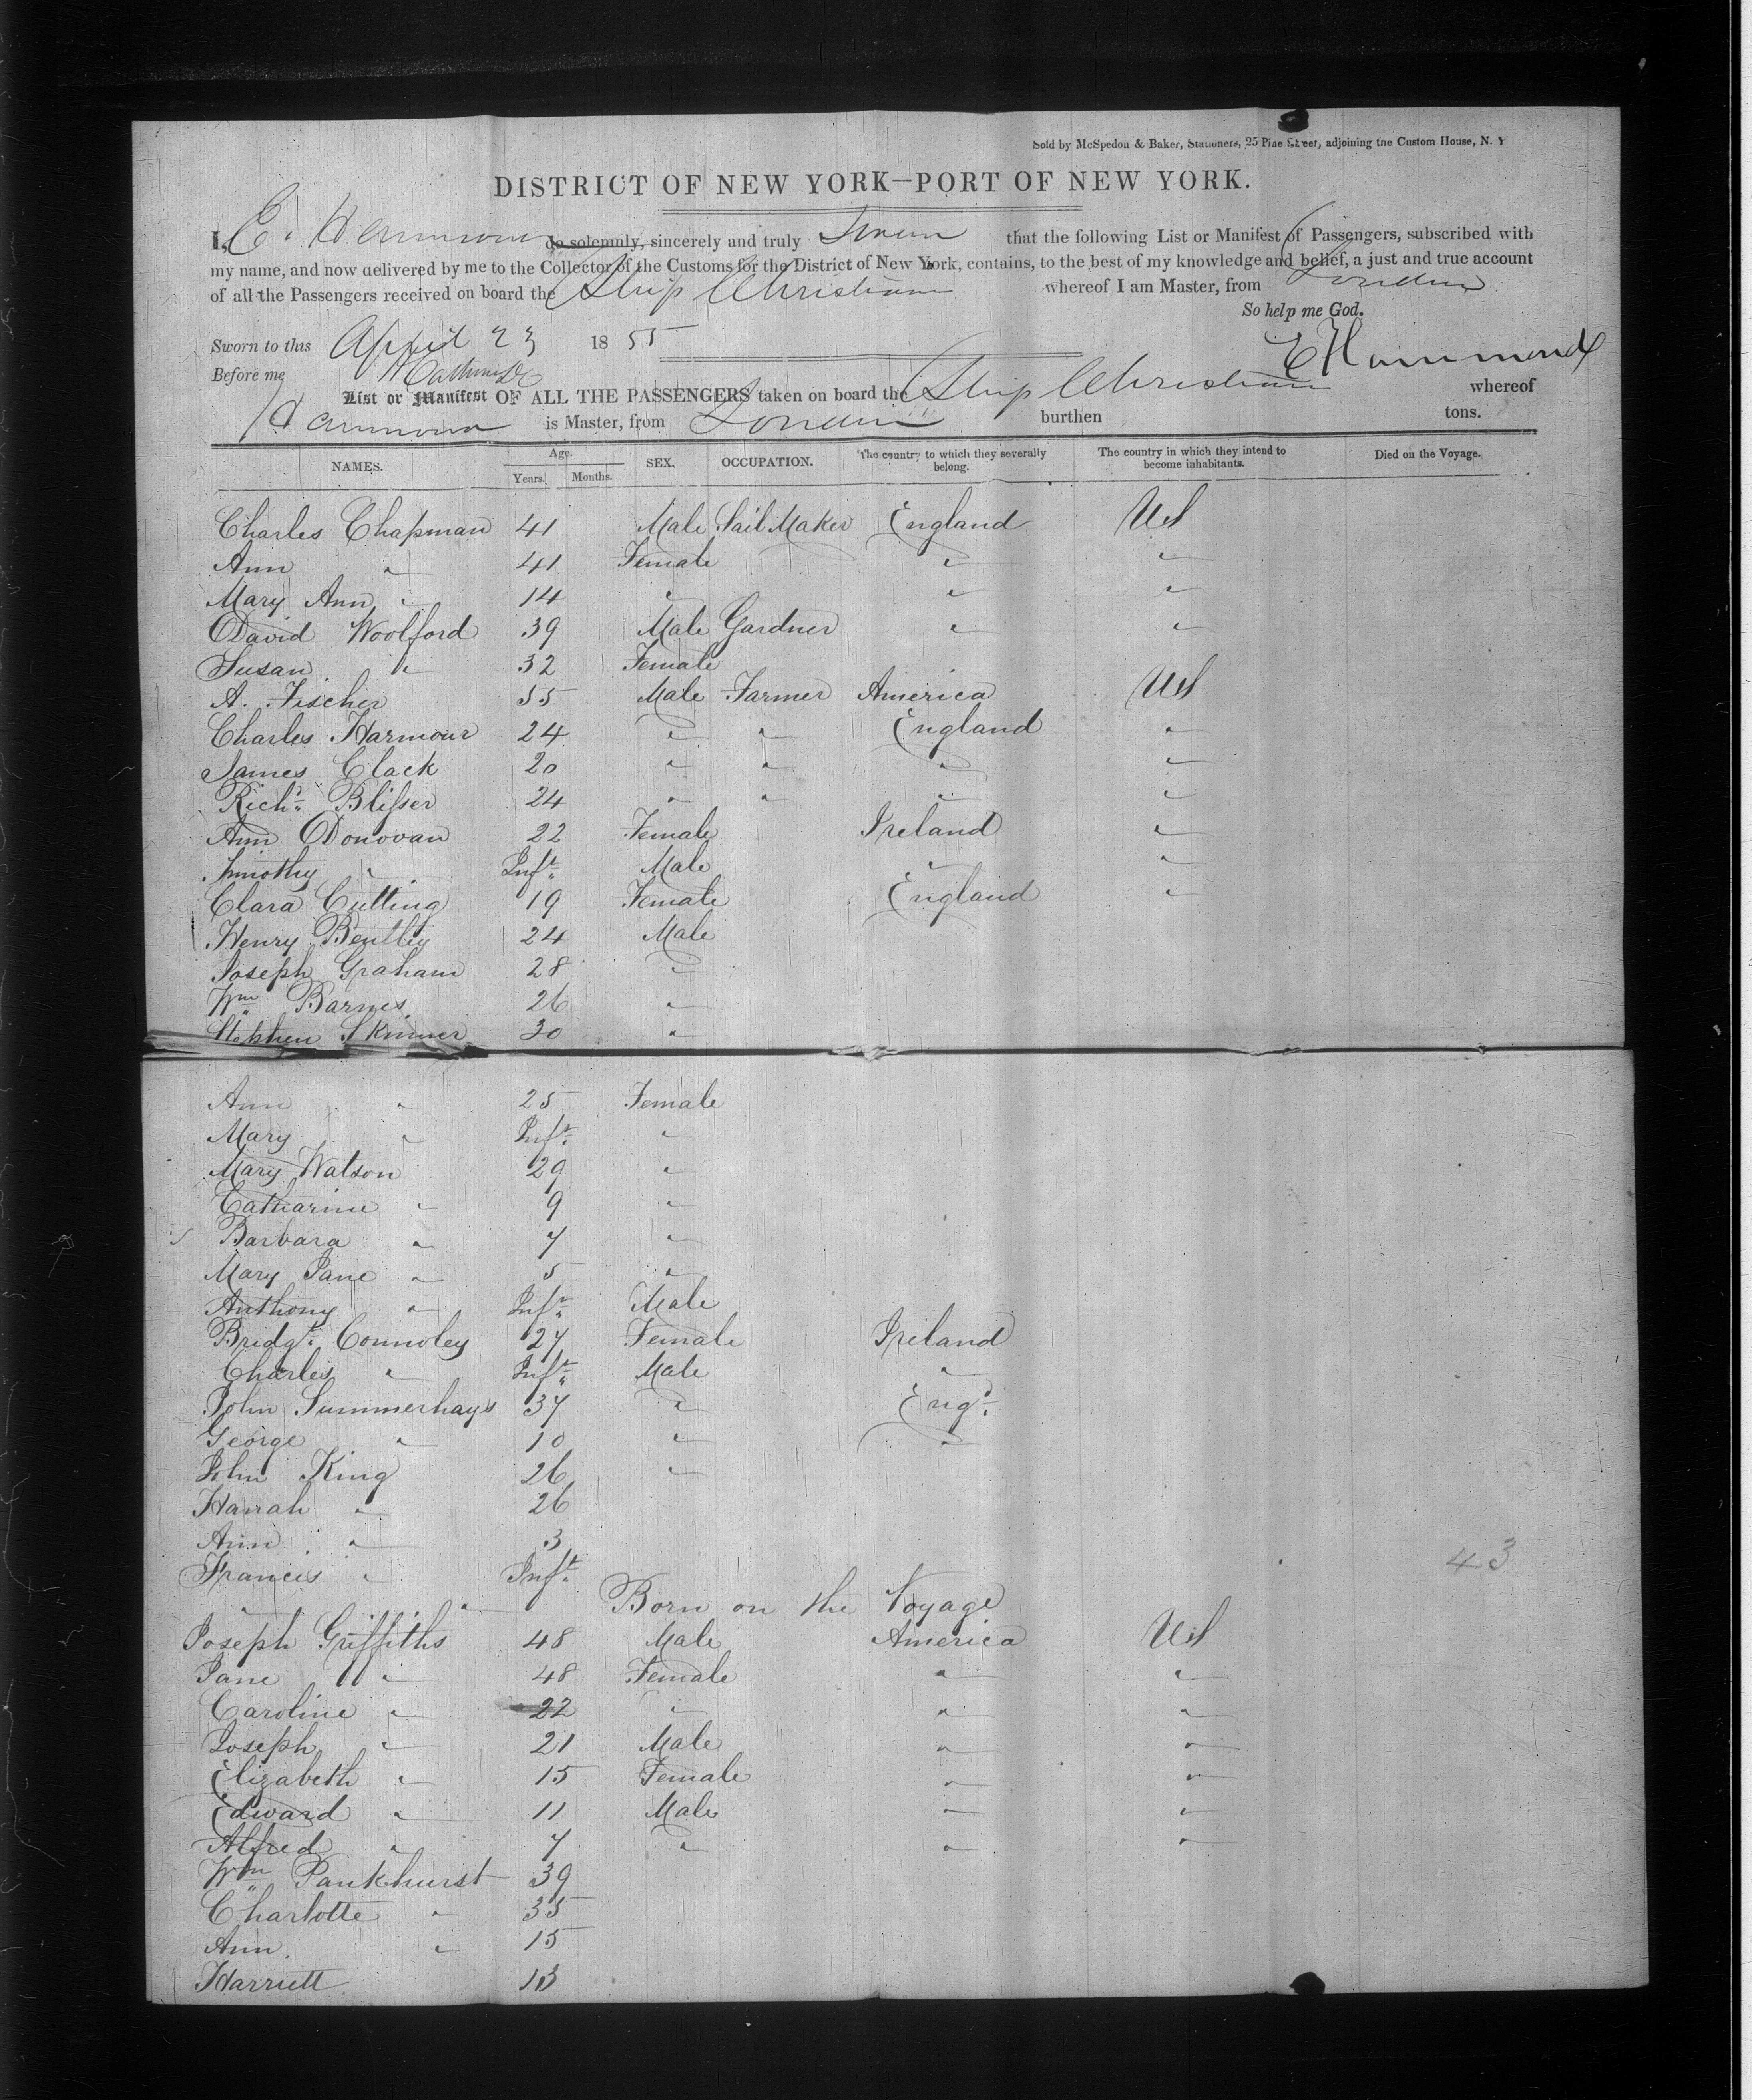 Sold by McSpedon & Baker, Stationers, 25 Pine Street, adjoining the Custom House, N. Y
DISTRICT OF NEW YORK—PORT OF NEW YORK.
I, E. Hammond do solemnly, sincerely and truly Swear that the following List or Manifest of Passengers, subscribed with
my name, and now delivered by me to the Collector of the Customs for the District of New York, contains, to the best of my knowledge and belief, a just and true account
of all the Passengers received on board the Ship Christiana whereof I am Master, from London
So help me God.
Sworn to this April 23 1855
E Hammond
Before me
List or Manifest OF ALL THE PASSENGERS taken on board the Ship Christiana whereof
Hammond is Master, from London burthen tons.
NAMES. Age. Years. Months. SEX. OCCUPATION. The country to which they severally belong. The country in which they intend to become inhabitants. Died on the Voyage.
Charles Chapman 41 Male Sail Maker England US
Ann " 41 Female " "
Mary Ann " 14 " " "
David Woolford 39 Male Gardner " "
Susan " 32 Female
A. Fischer 55 Male Farmer America US
Charles Harmour 24 " " England "
James Clack 20 " " " "
Richd. Blisser 24 " " " "
Ann Donovan 22 Female Ireland "
Timothy " Inft. Male " "
Clara Cutting 19 Female England "
Henry Bentley 24 Male
Joseph Graham 28 "
Wm Barnes 26 "
Stephen Skinner 30 "
Ann " 25 Female
Mary " Inft. "
Mary Watson 29 "
Catharine " 9 "
Barbara " 7 "
Mary Jane " 5 "
Anthony " Inft. Male
Bridgt. Connoley 27 Female Ireland
Charles " Inft. Male "
John Summerhays 37 " Engd.
George " 10 " "
John King 26 "
Hannah " 26
Ann " 3
Francis " Inft.
43
" " Born on the Voyage
Joseph Griffiths 48 Male America US
Jane " 48 Female " "
Caroline " 22 " " "
Joseph " 21 Male " "
Elizabeth " 15 Female " "
Edward " 11 Male " "
Alfred " 7 " " "
Wm Pankhurst 39
Charlotte " 35
Ann " 15
Harriett 13